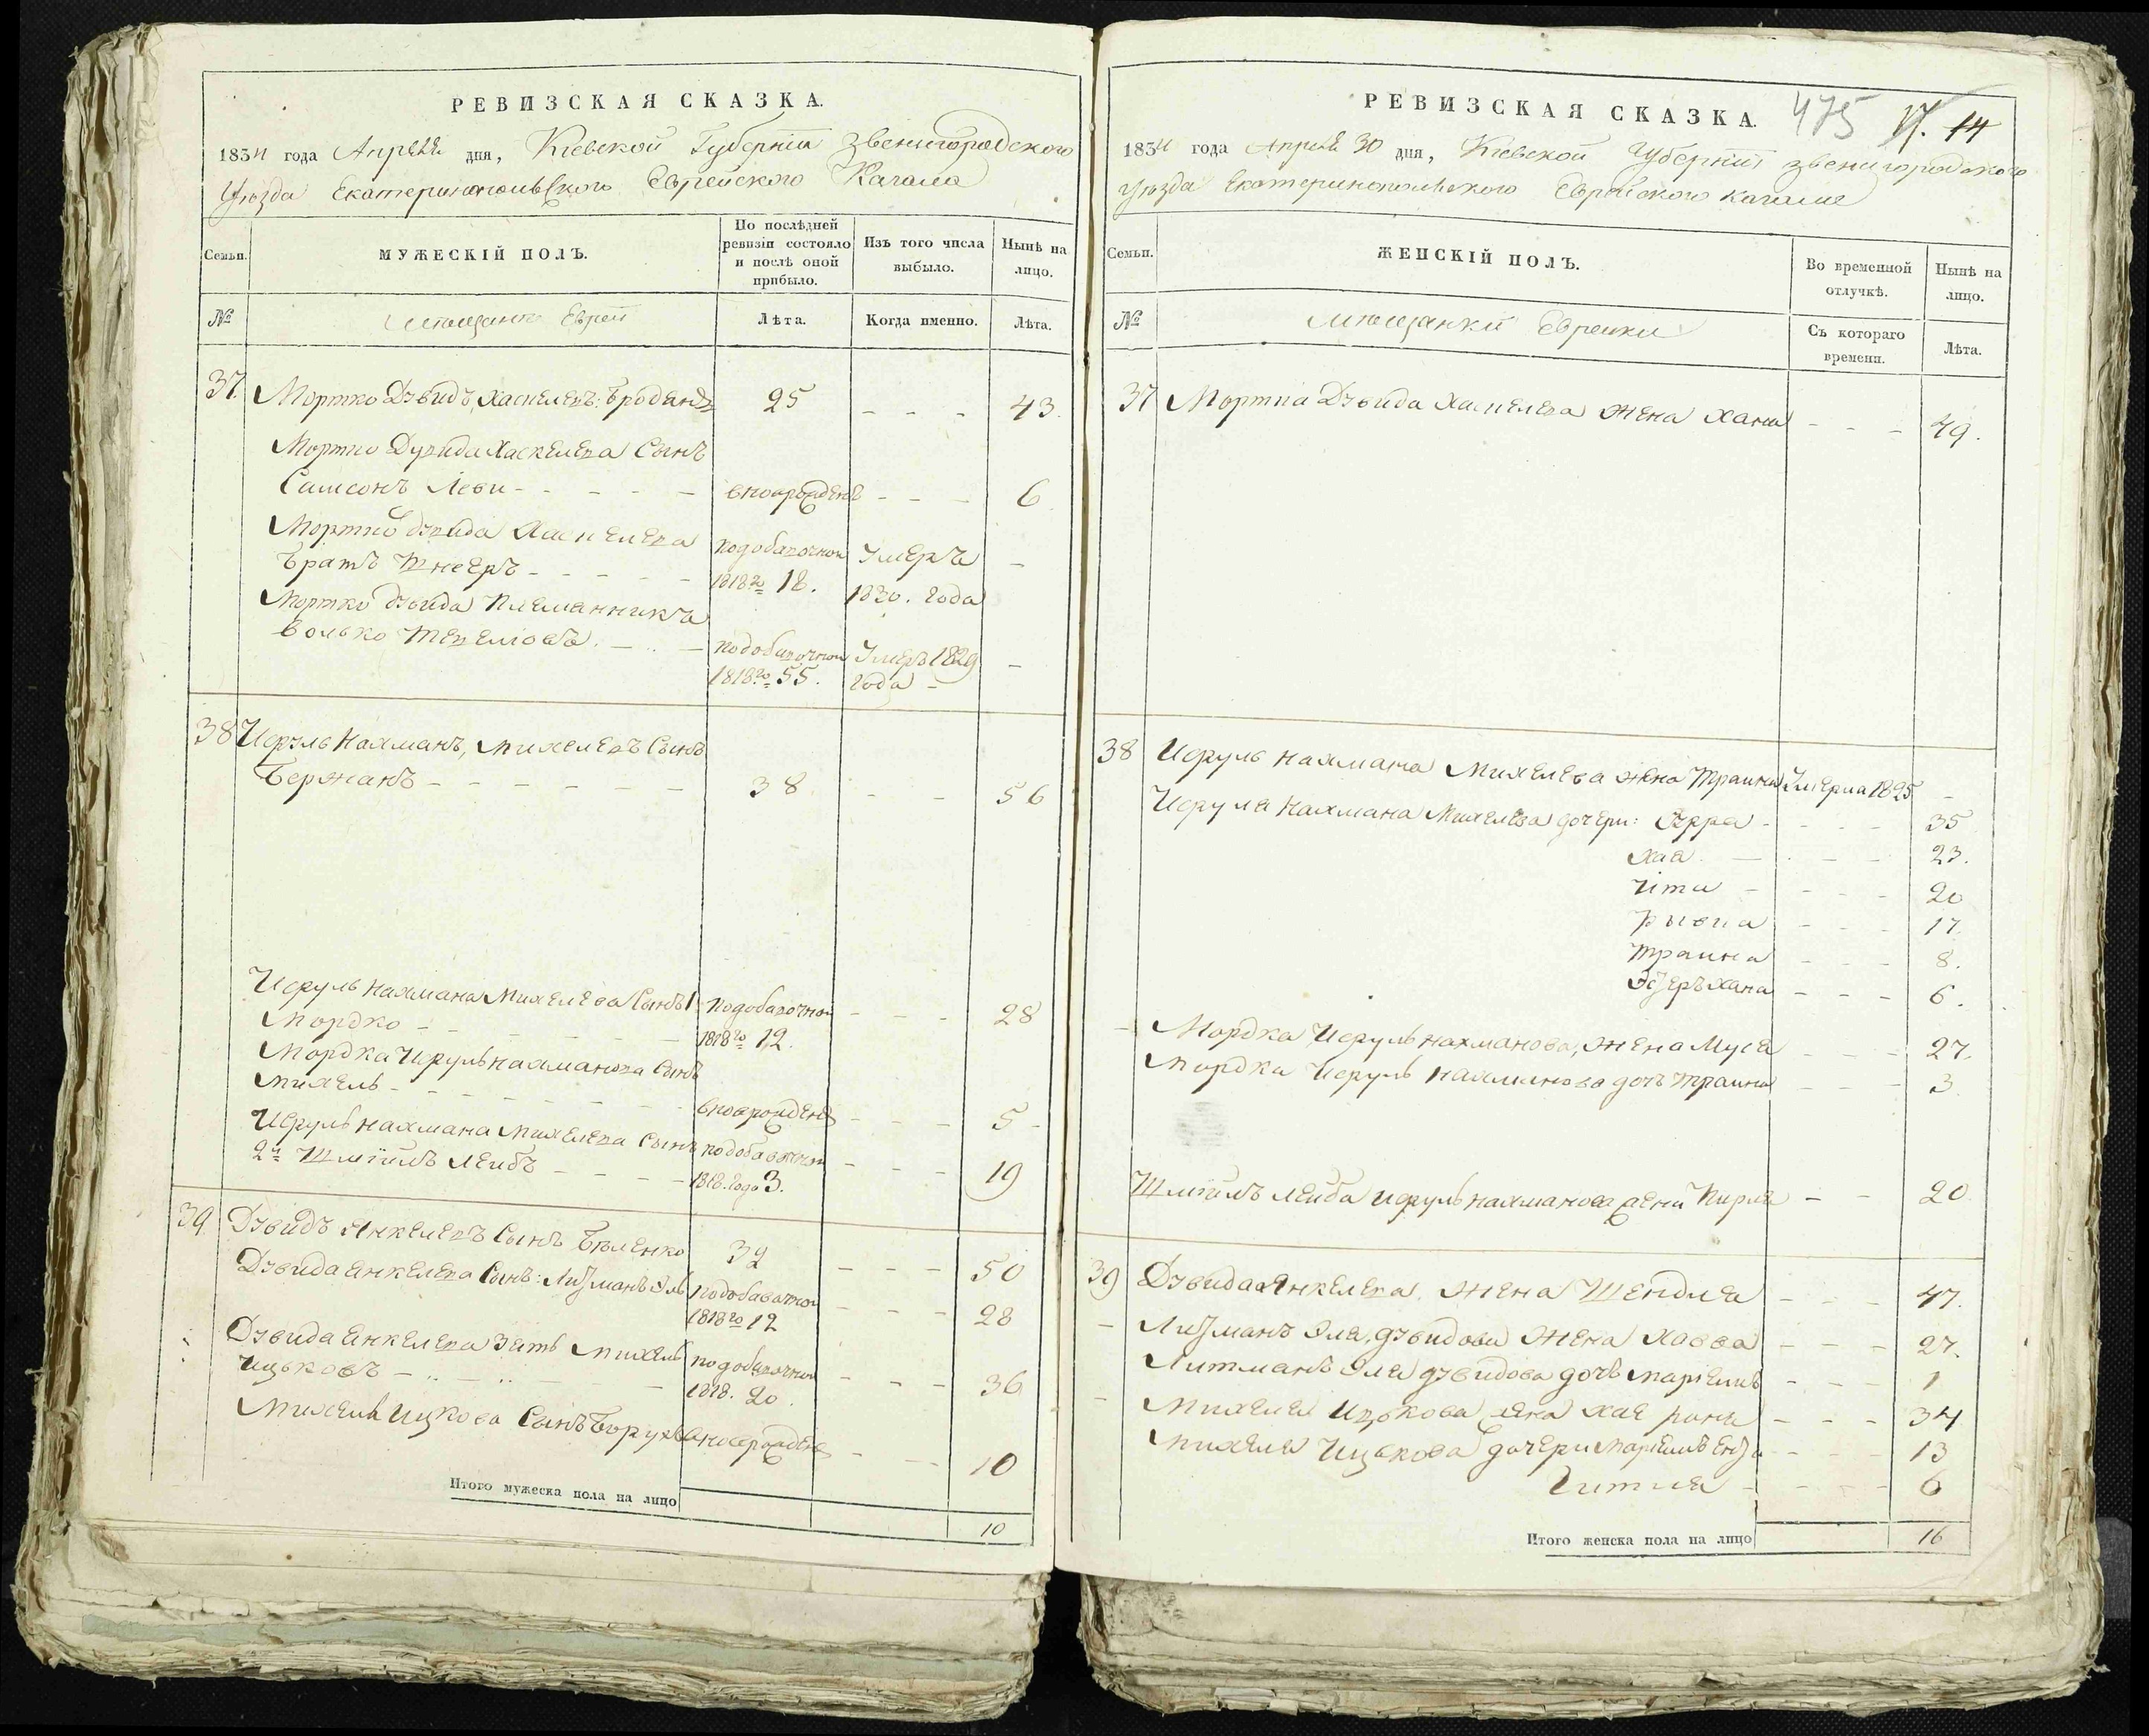 РЕВИЗСКАЯ СКАЗКА.
1834 года Апреля дня, Кіевской Губерніи Звенигородского
Уезда Екатеринопольского Еврейского Кагала
Семьи. МУЖЕСКІЙ ПОЛЪ. По послѣдней ревизіи состояло и послѣ оной прибыло. Изъ того числа выбыло. Нынѣ на лицо.
№ Мещане Евреи Лѣта. Когда именно. Лѣта.
37. Мортко Дувидъ Хаскелевъ Бродянъ 25 - - - 43.
Мортко Дувида Хаскелева Сынъ
Самсонъ Леви - - - - - вноврожденъ - - - 6
Мортко Дувида Хаскелева
братъ Шнееръ - - - - - подобавочной 1818го 18. Умеръ 1830. года -
Мортко Дувида племянникъ
Волько Тевеліовъ - - - подобавочной 1818го 55. Умеръ 1829 года -
38 Исруль Нахманъ, Михелевъ Сынъ
Бержанъ - - - - - - 38 - - 56
Исруль Нахмана Михелева Сынъ 1й
Мордко - - подобавочной 1818го 12. - - - 28
Мордка Исруль Нахманова Сынъ
Михель - - - - - - - вноврожденъ - - - 5 -
Исруль Нахмана Михелева Сынъ
2й Шмуль Лейбъ - - - - подобавочной 1818. года 3. - - - 19
39 Дувидъ Янкелевъ Сынъ Беленко 32 - - - 50
Дувида Янкелева Сынъ: Литманъ Эль подобавочной 1818го 12 - - - 28
Дувида Янкелева Зять Михель
Ицьковъ - - - - подобавочной 1818. 20. - - - 36
Михеля Ицкова Сынъ Борухъ вноврожденъ - - - 10
Итого мужеска пола на лицо 10
РЕВИЗСКАЯ СКАЗКА. 475 14
1834 года Апреля 30 дня, Кіевской Губерніи Звенигородского
Уезда Екатеринопольского Еврейского Кагала
Семьи. ЖЕНСКІЙ ПОЛЪ. Во временной отлучкѣ. Нынѣ на лицо.
№ Мещанки Еврейки Съ котораго времени. Лѣта.
37 Мортка Дувида Хаскелева жена Хана - - - 49.
38 Исруль Нахмана Михелева жена Траина Умерла 1825 -
Исруля Нахмана Михелева дочери: - - - 35
Хая - - - 23.
Ита - - - 20
Рывка - - - 17.
Траина - - - 8.
Эстеръ Хана - - - 6.
- Мордка Исруль Нахманова, жена Муся - - - 27.
Мордка Исруль Нахманова дочь Траина - - - 3
Шмуль Лейба Исруль Нахманова жена Пирля - - 20
39 Дувида Янкелева жена Шендля - - - 47.
- Литманъ Эля Дувидова жена Хавва - - - 27.
Литманъ Эля Дувидова дочь Маріемъ - - - 1
- Михеля Ицькова жена Хае - - - 34
Михеля Ицькова дочери Маріемъ Ента - - - 13
Гитля - - - 6
Итого женска пола на лицо 16